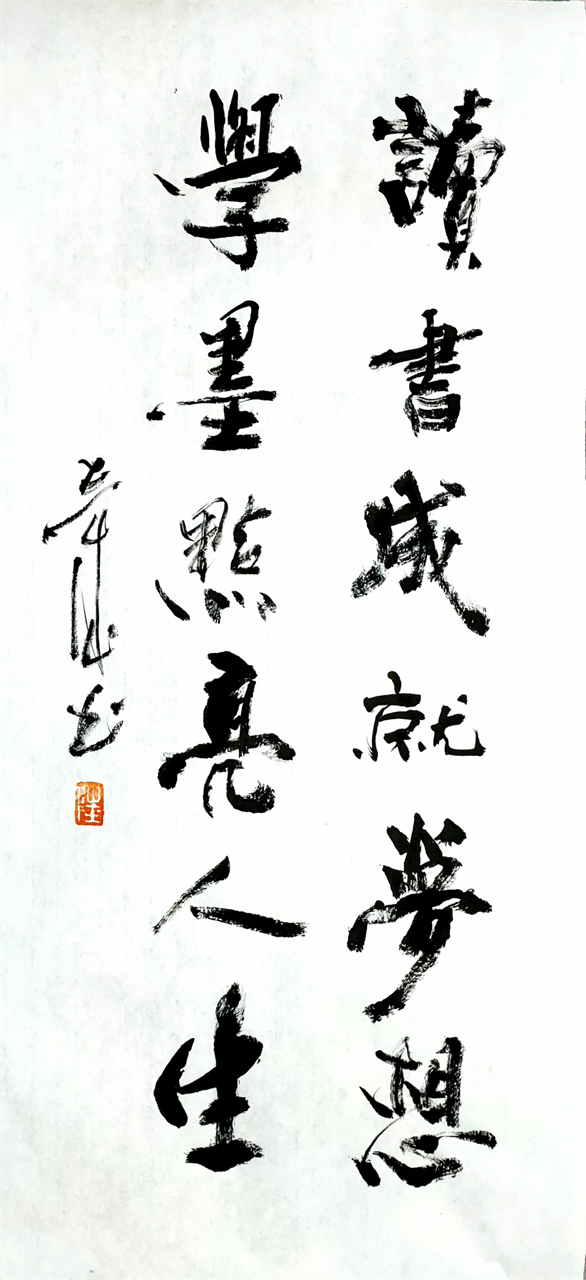 讀書成就夢想
學墨點亮人生